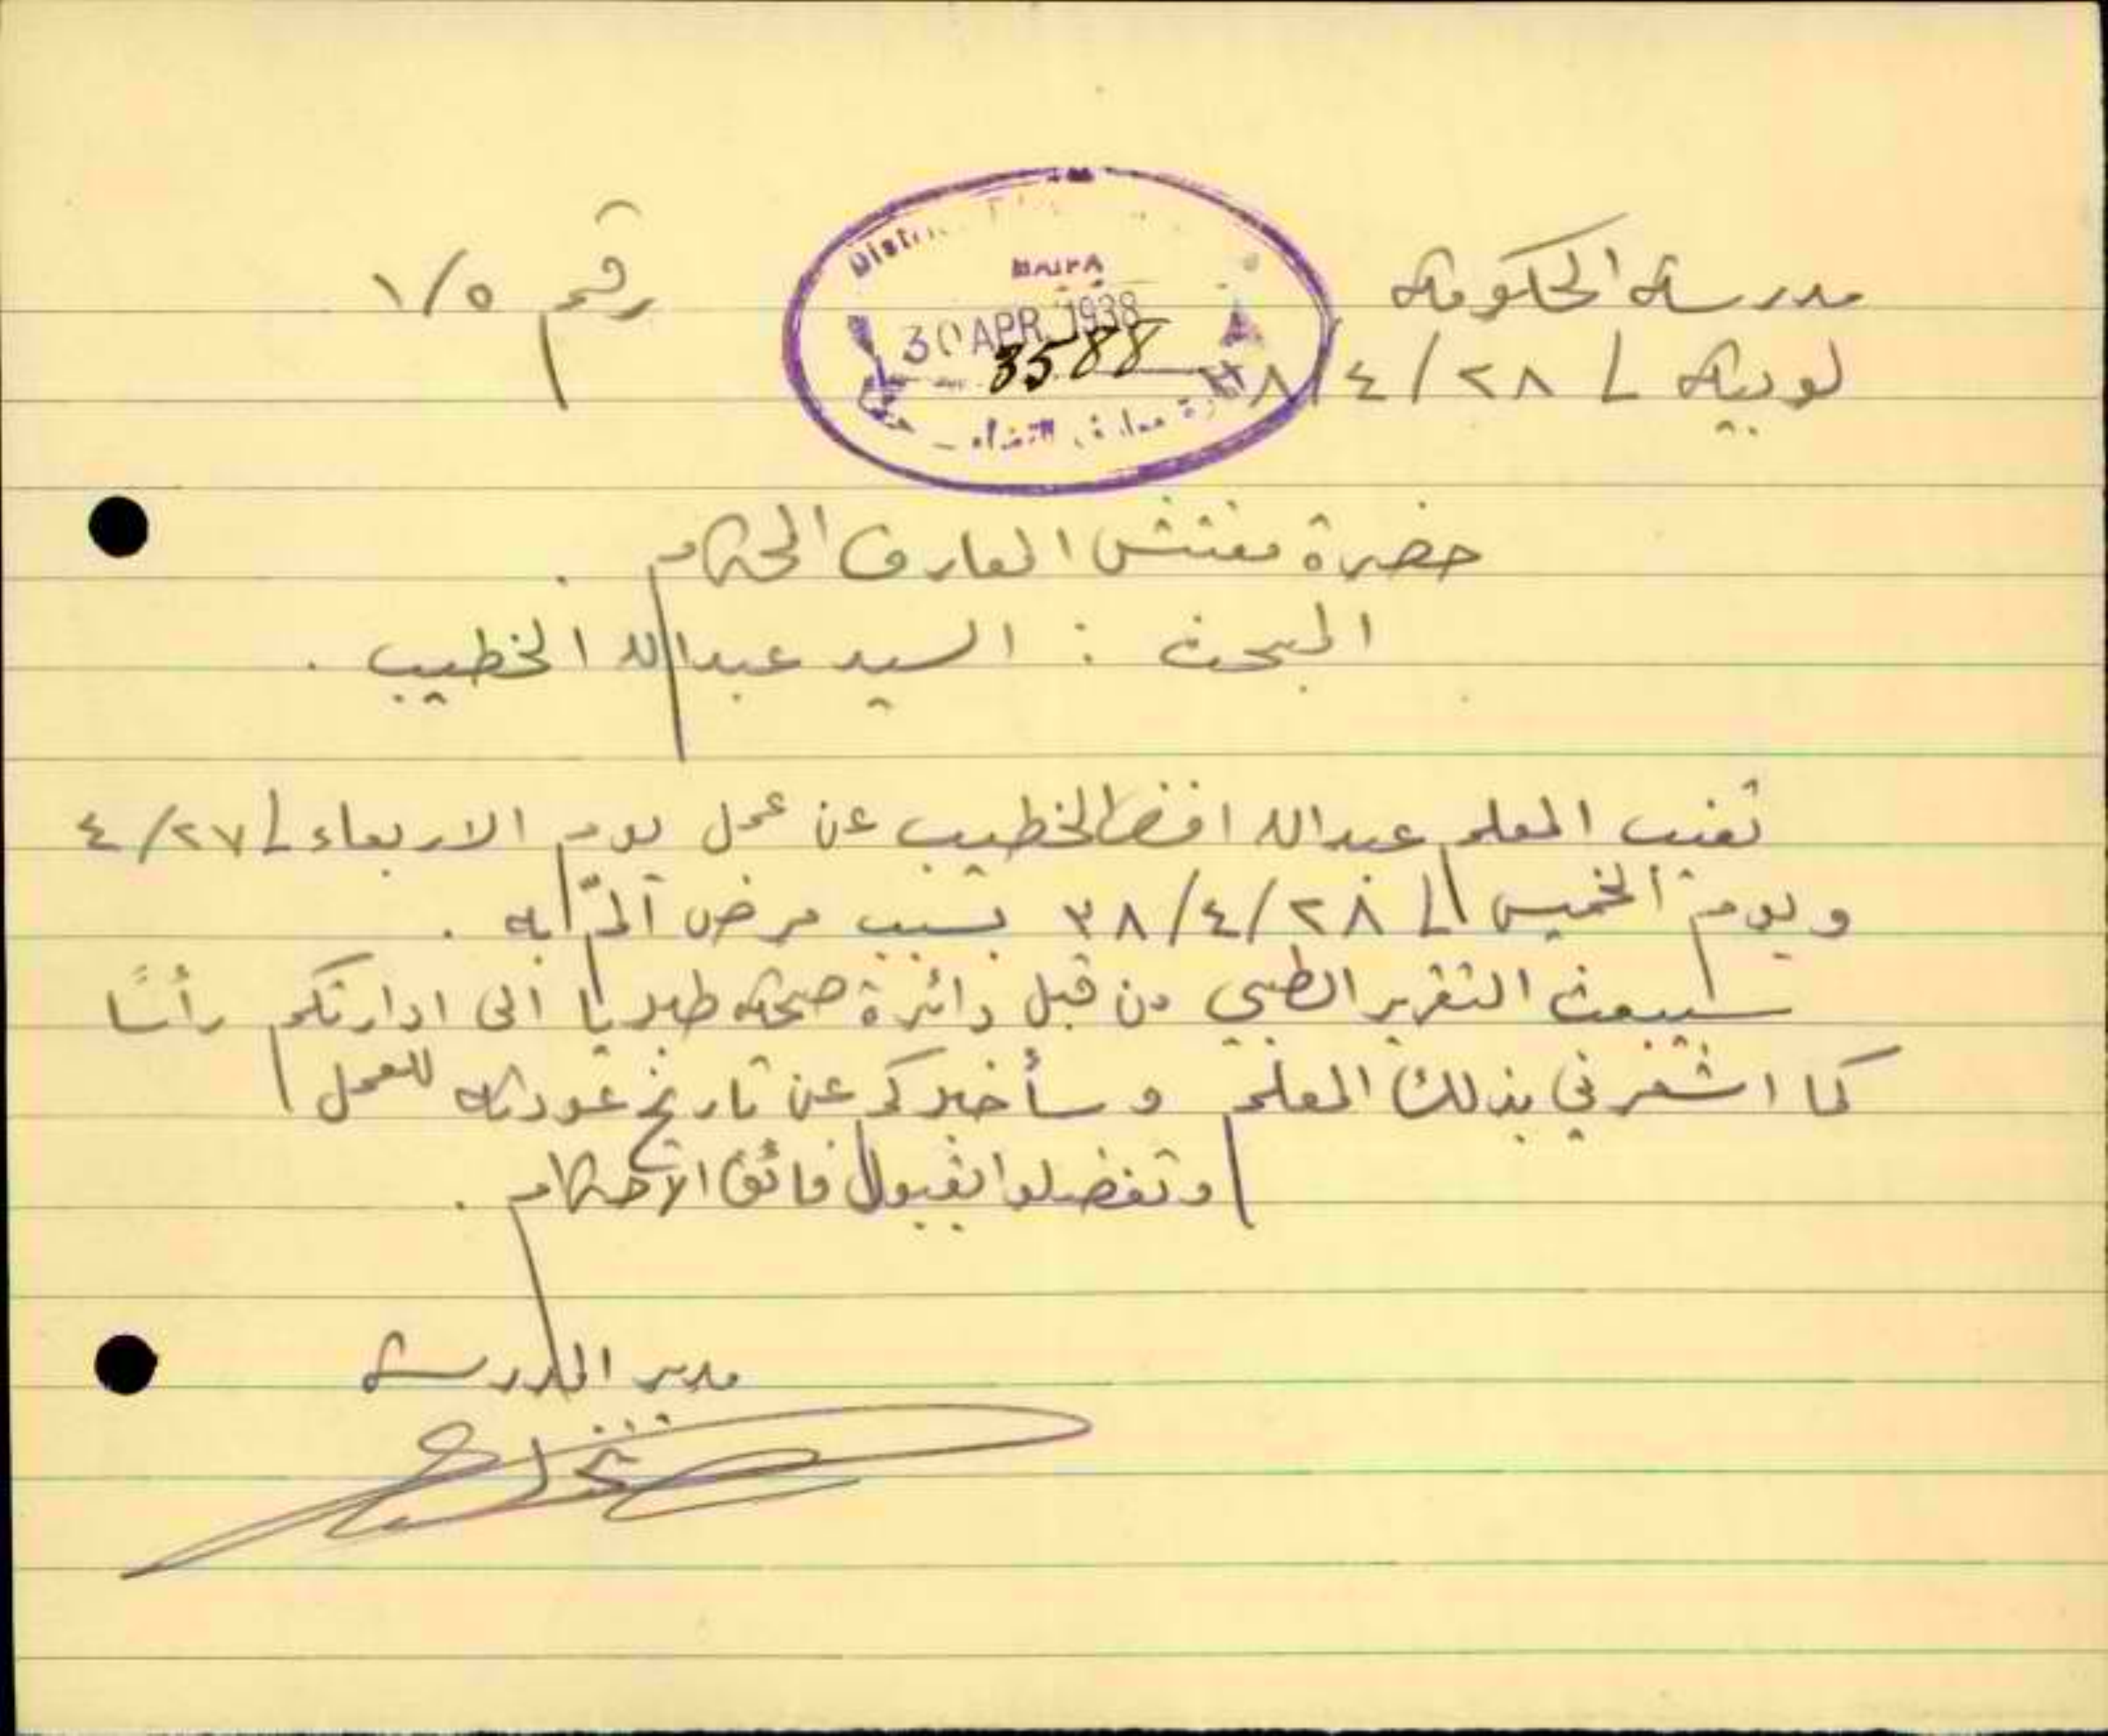 مدرسة الحكومة
رقم ١/٥
لوبية في ٢٨/٤/٣٨
HAIFA
30 APR 1938
3588
حضرة مفتش المعارف المحترم .
المبحث : السيد عبدالله الخطيب .
تغيب المعلم عبدالله افندي الخطيب عن عمل يوم الاربعاء في ٢٧/٤
ويوم الخميس في ٢٨/٤/٣٨ بسبب مرض ألمّ به .
سيبعث التقرير الطبي من قبل دائرة صحة طبريا الى ادارتكم رأسًا
كما اشعرني بذلك المعلم وسأخبركم عن تاريخ عودته للعمل
وتفضلوا بقبول فائق الاحترام .
مدير المدرسة